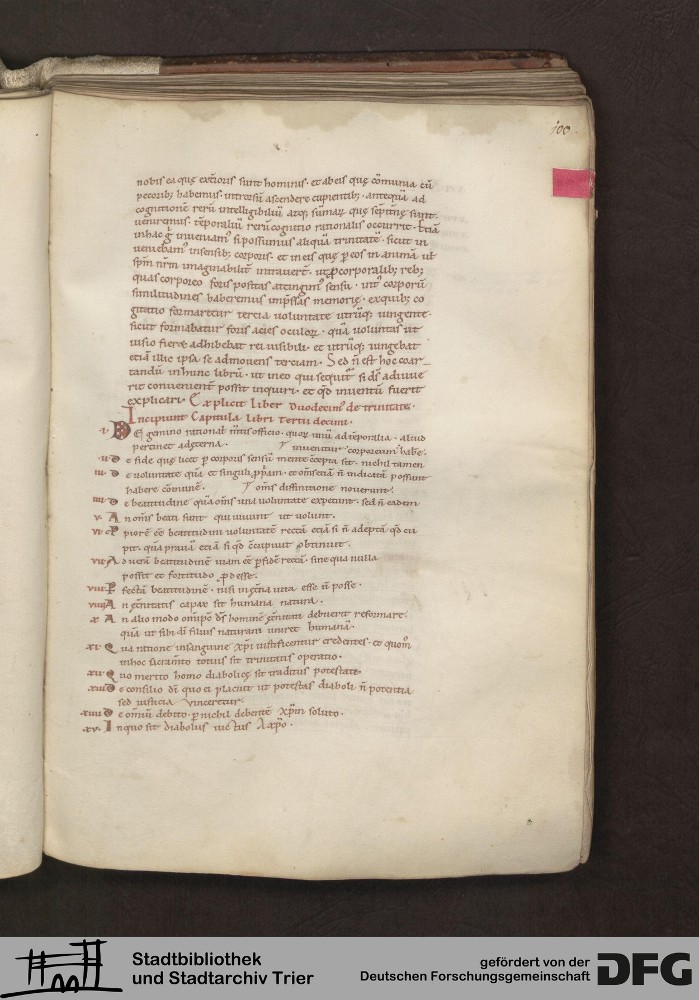 100
nobis ea quę exterioris sunt hominis · et ab eis quę cōmunia cū
pecorib; habemus · introrsū ascendere cupientib; · antequā ad
cognitionē rerū intelligibiliū atq; sūmarū quę sēpitnę sunt
veniremus · tēporaliū rerū cognitio rationalis occurrit · Etiā
in hac ḡ inveniamꝰ si possumus aliquā trinitatē · sicut in
veniebamꝰ in sensib; corporis · et in eis quę ꝑ eos in animā vel
spm̄ nr̄m imaginabilit̄ intraverт̄ · ut ꝓ corporalib; reb;
quas corporeo foris positas attingimꝰ sensu · intꝰ corporū
similitudines haberemus imp̄ssas memorię · ex quib; co
gitatio formaretur tercia voluntate utrūq; iungente ·
sicut formabatur foris acies oculoꝝ · quā voluntas ut
visio fieret adhibebat rei visibili · et utrūq; iungebat
etiā illic ipsa se admovens terciam · Sed n̄ est hoc coar
tandū in hunc librū · ut in eo qui sequitᷣ si ds̄ adiuve
rit convenienter possit inquiri · et qd̄ inventū fuerit
explicari · Explicit Liber duodecimꝰ de trinitate ·
Incipiunt Capitula libri tertii decimi ·
i · De gemino rational mentis officio · quoꝝ unū ad tēporalia · aliud
pertinet ad ęterna ·
inveniтur corporeum habe ·
ii · De fide quę licet ꝑ corporis sensū mente cōcepta sit · nichil tamen
iii · De voluntate quā et singuli ꝓpriam · et om̄s etiā n̄ indicatā possunt
habere cōmunē ·
om̄s diffinitione noverunt ·
iiii · De beatitudine quā om̄s una voluntate expetunt · sed n̄ eadem
v · An om̄s beati sunt qui vivunt ut volunt ·
vi · Priorē eē beatitudini voluntatē rectā etiā si n̄ adeptā qd̄ cu
pit · quā pravā etiā si qd̄ cōcupivit obtinuit ·
vii · Ad verā beatitudinē viam eē ꝑ fidē rectā · sine qua nulla
possit et fortitudo ꝓdesse ·
viii · Pfectā beatitudinē · nisi in ęterna vita esse n̄ posse ·
viiii · An ęternitatis capax sit humana natura ·
x · An alio modo om̄ps ds̄ hominē ęternitati debuerit reformare ·
quā ut sibi di filius naturam uniret humanā ·
xi · Qua ratione in sanguine xp̄i iustificentur credentes · et quom̄
in hoc sacram̄to totius sit trinitatis operatio ·
xii · Quo merito homo diabolicę sit traditus potestati
xiii · De consilio di quo ei placuit ut potestas diaboli n̄ potentia
sed iusticia vinceretur ·
xiiii · De om̄iū debito · ꝑ nichil debentē xp̄m soluto ·
xv · In quo sit diabolus victus A xp̄o ·
Stadtbibliothek
und Stadtarchiv Trier
gefördert von der
Deutschen Forschungsgemeinschaft
DFG